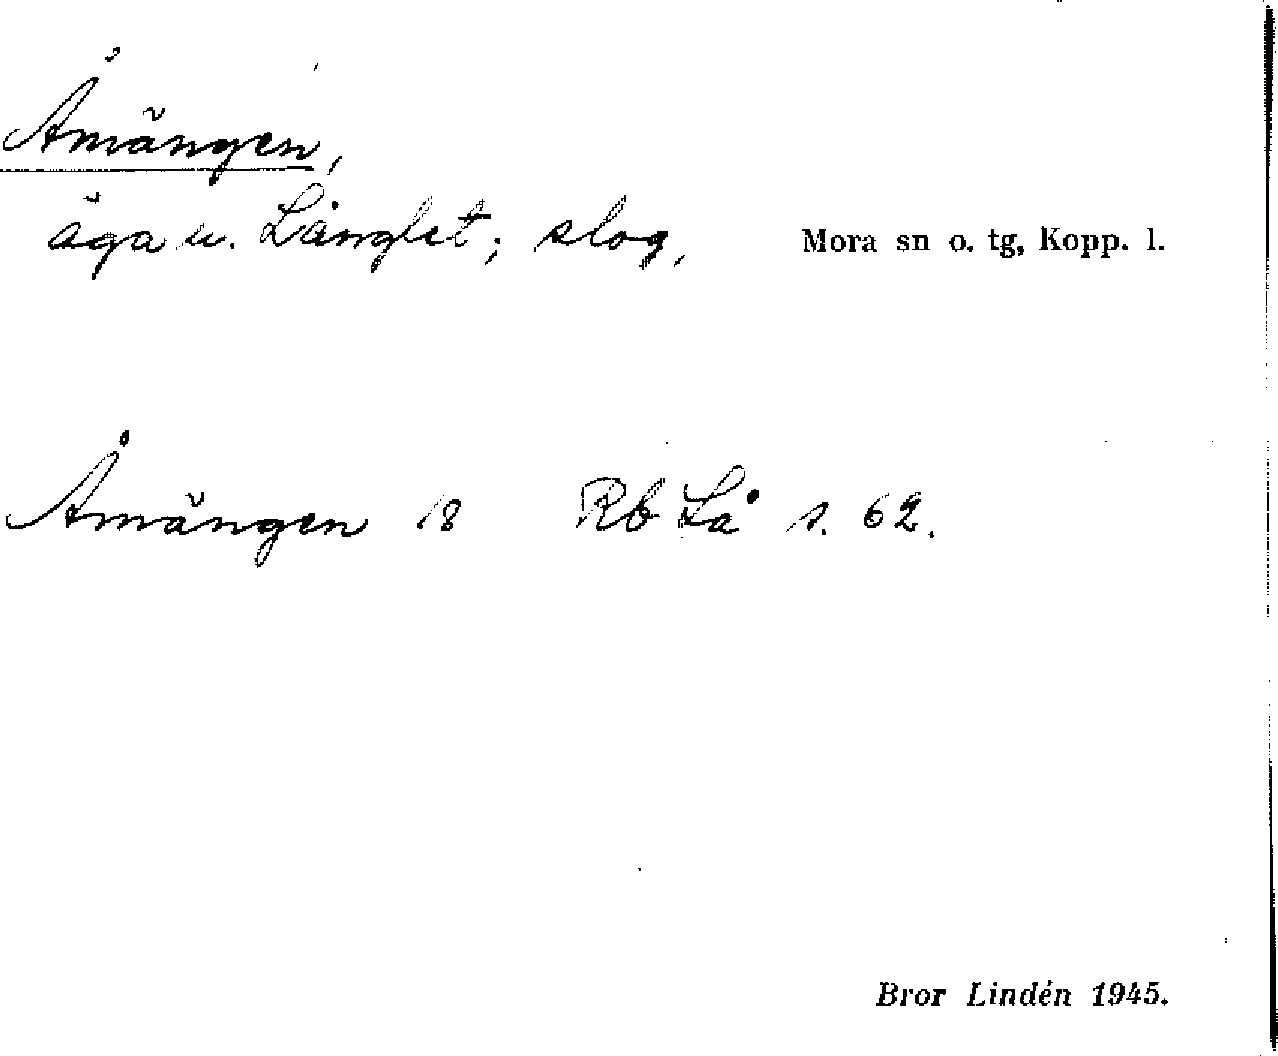 Åmängen,
äga u. Långlet; slog, Mora sn o. tg, Kopp. l.
Åmängen 18 Rb Lå s. 62.
Bror Lindén 1945.